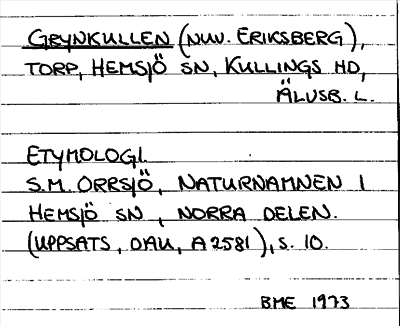 GRYNKULLEN (NUV. ERIKSBERG),
TORP, HEMSJÖ SN, KULLINGS HD,
ÄLVSB. L.
ETYMOLOGI.
S.M. ORRSJÖ, NATURNAMNEN I
HEMSJÖ SN, NORRA DELEN.
(UPPSATS, DAU, A 2581), S. 10.
BME 1973